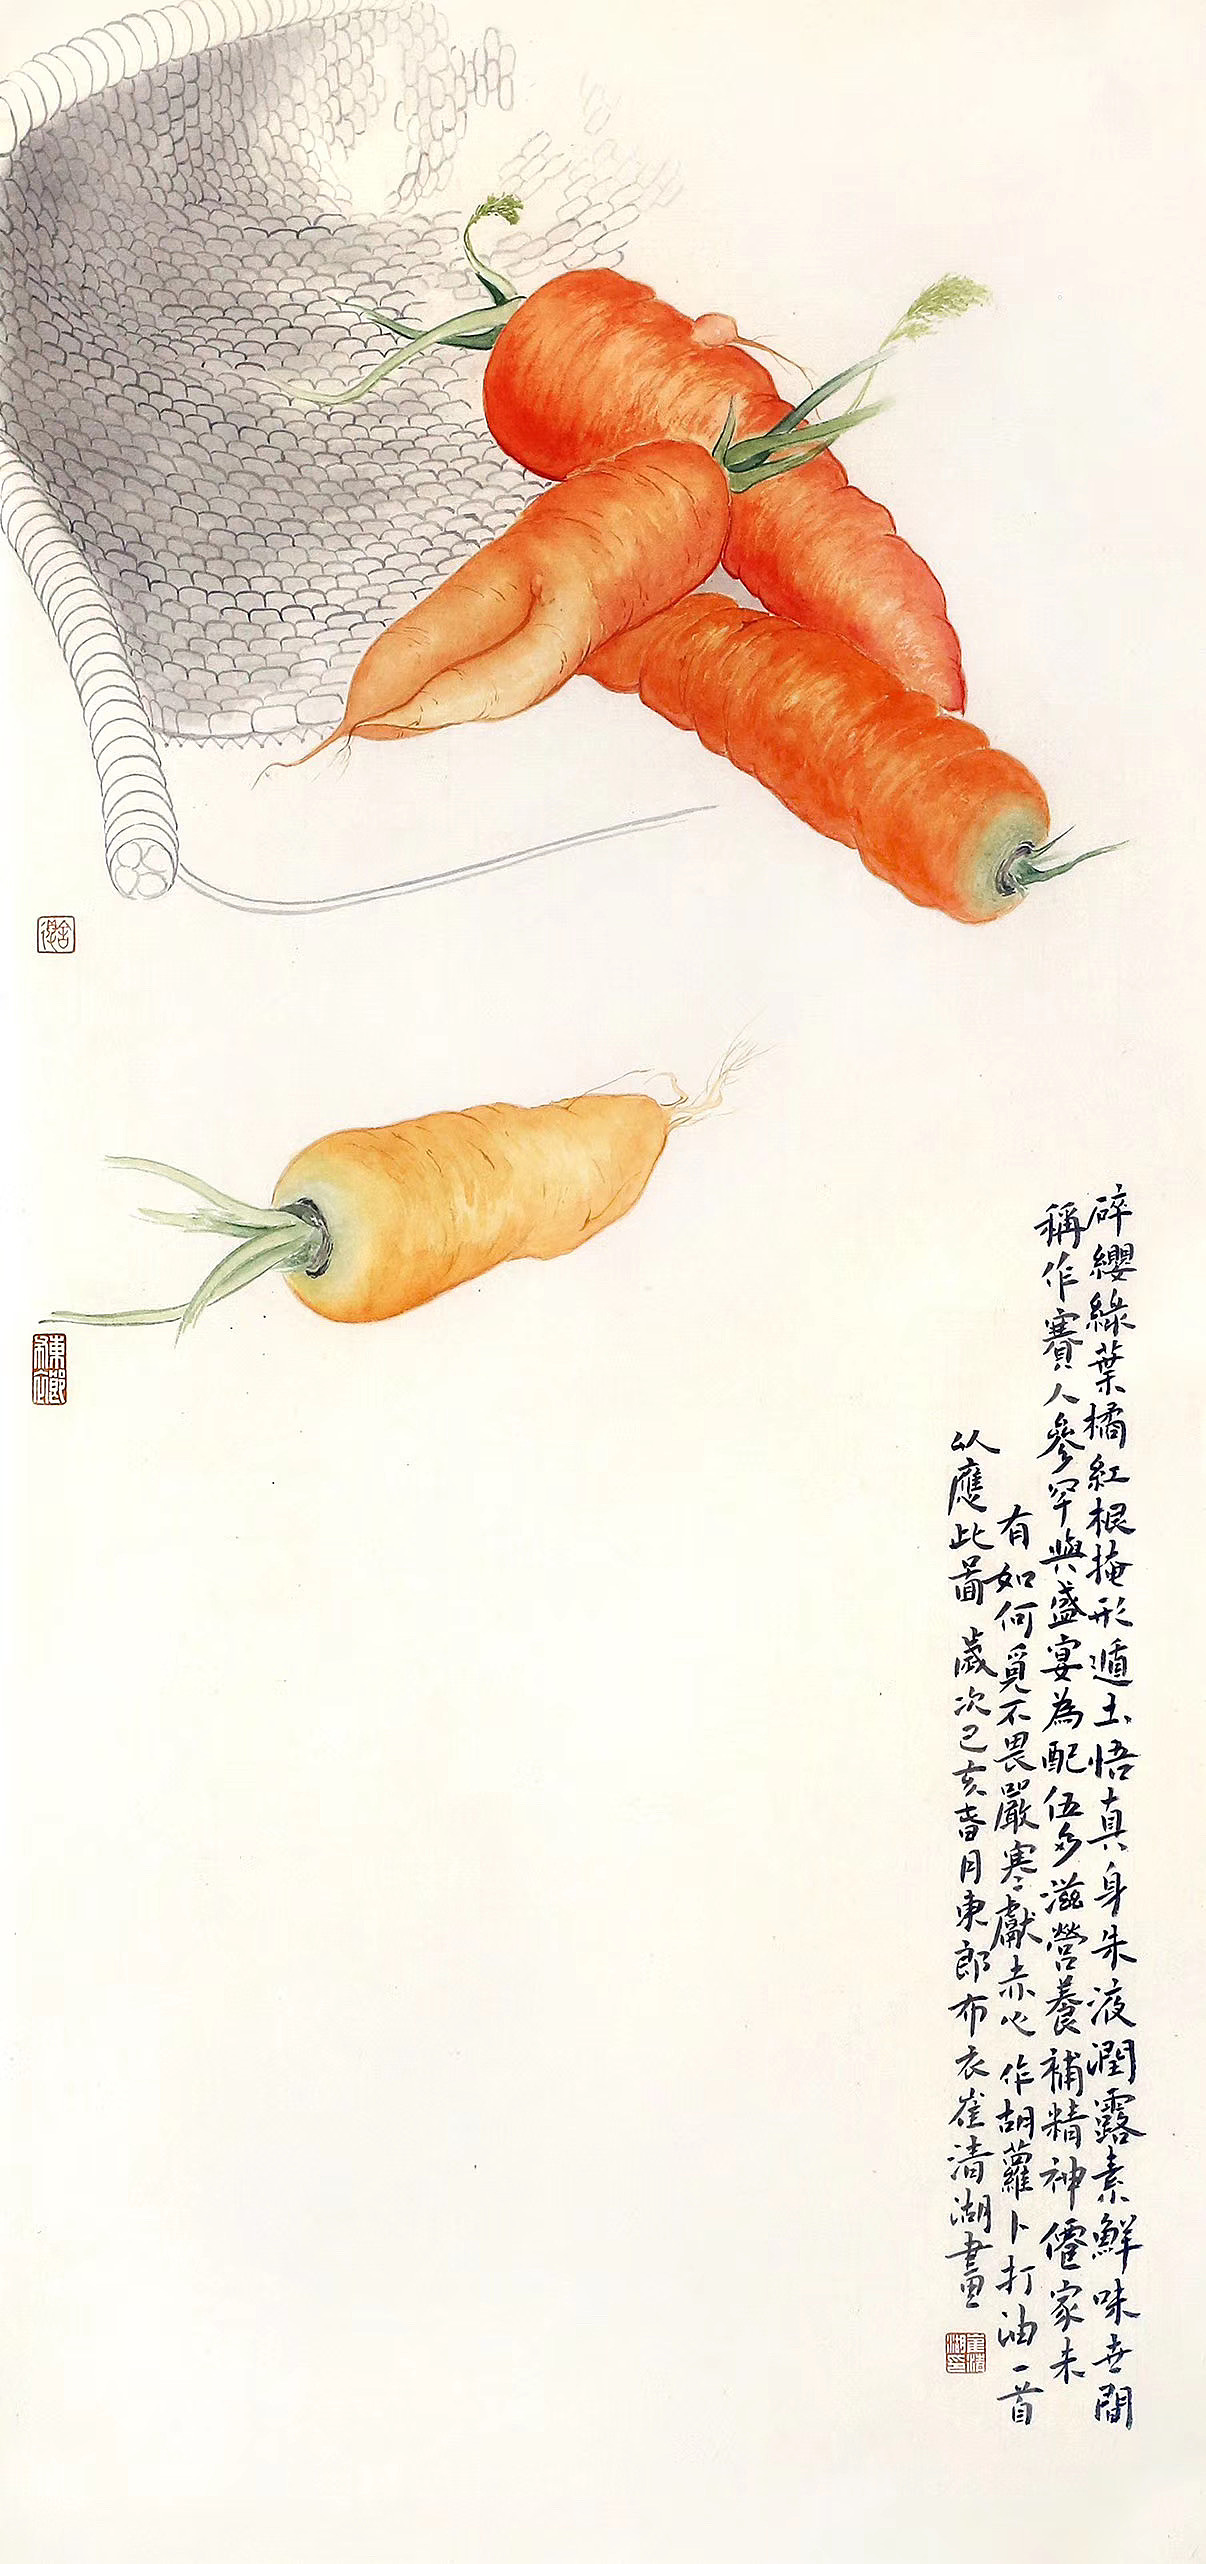 碎纓綠葉橘紅根掩形遁土悟真身朱液潤露素鮮味世間
稱作賽人參罕與盛宴為配伍多滋營養補精神僊家未
有如何覓不畏嚴寒獻赤心 作胡蘿卜打油一首
以應此圖 歲次己亥春月東郎布衣崔清湖畫